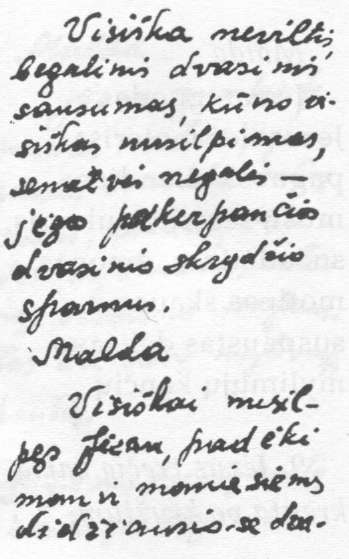 Visiška neviltis,
begalinis dvasinis
sausumas, kūno vi-
siškas nusilpimas,
senatvės negalės
jėga pakerpančios
dvasinio skrydžio
sparnus.
Malda
Visiškai nusil-
pęs Jėzau, padėki
man ir maniesiems
didžiausio-se dva-